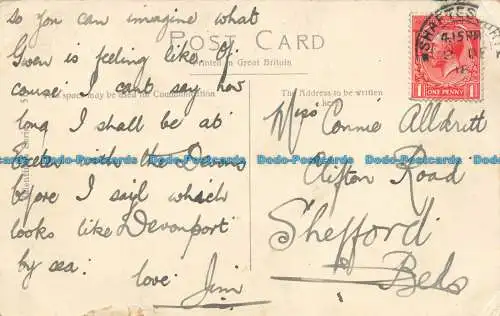 So you can imagine what
Gwen is feeling like. Of
course I can't say how
long I shall be at
Exeter with the Devons
before I sail which
looks like Devonport
by sea.
love Jim
POST CARD
Printed in Great Britain
This space may be used for Communication
The Address to be written
here
Miss Connie Alldritt
Clifton Road
Shefford
Beds
4.15 PM
1 ONE PENNY 1
Dodo-Postcards
Dodo-Postcards
Dodo-Postcards
Dodo-Postcards